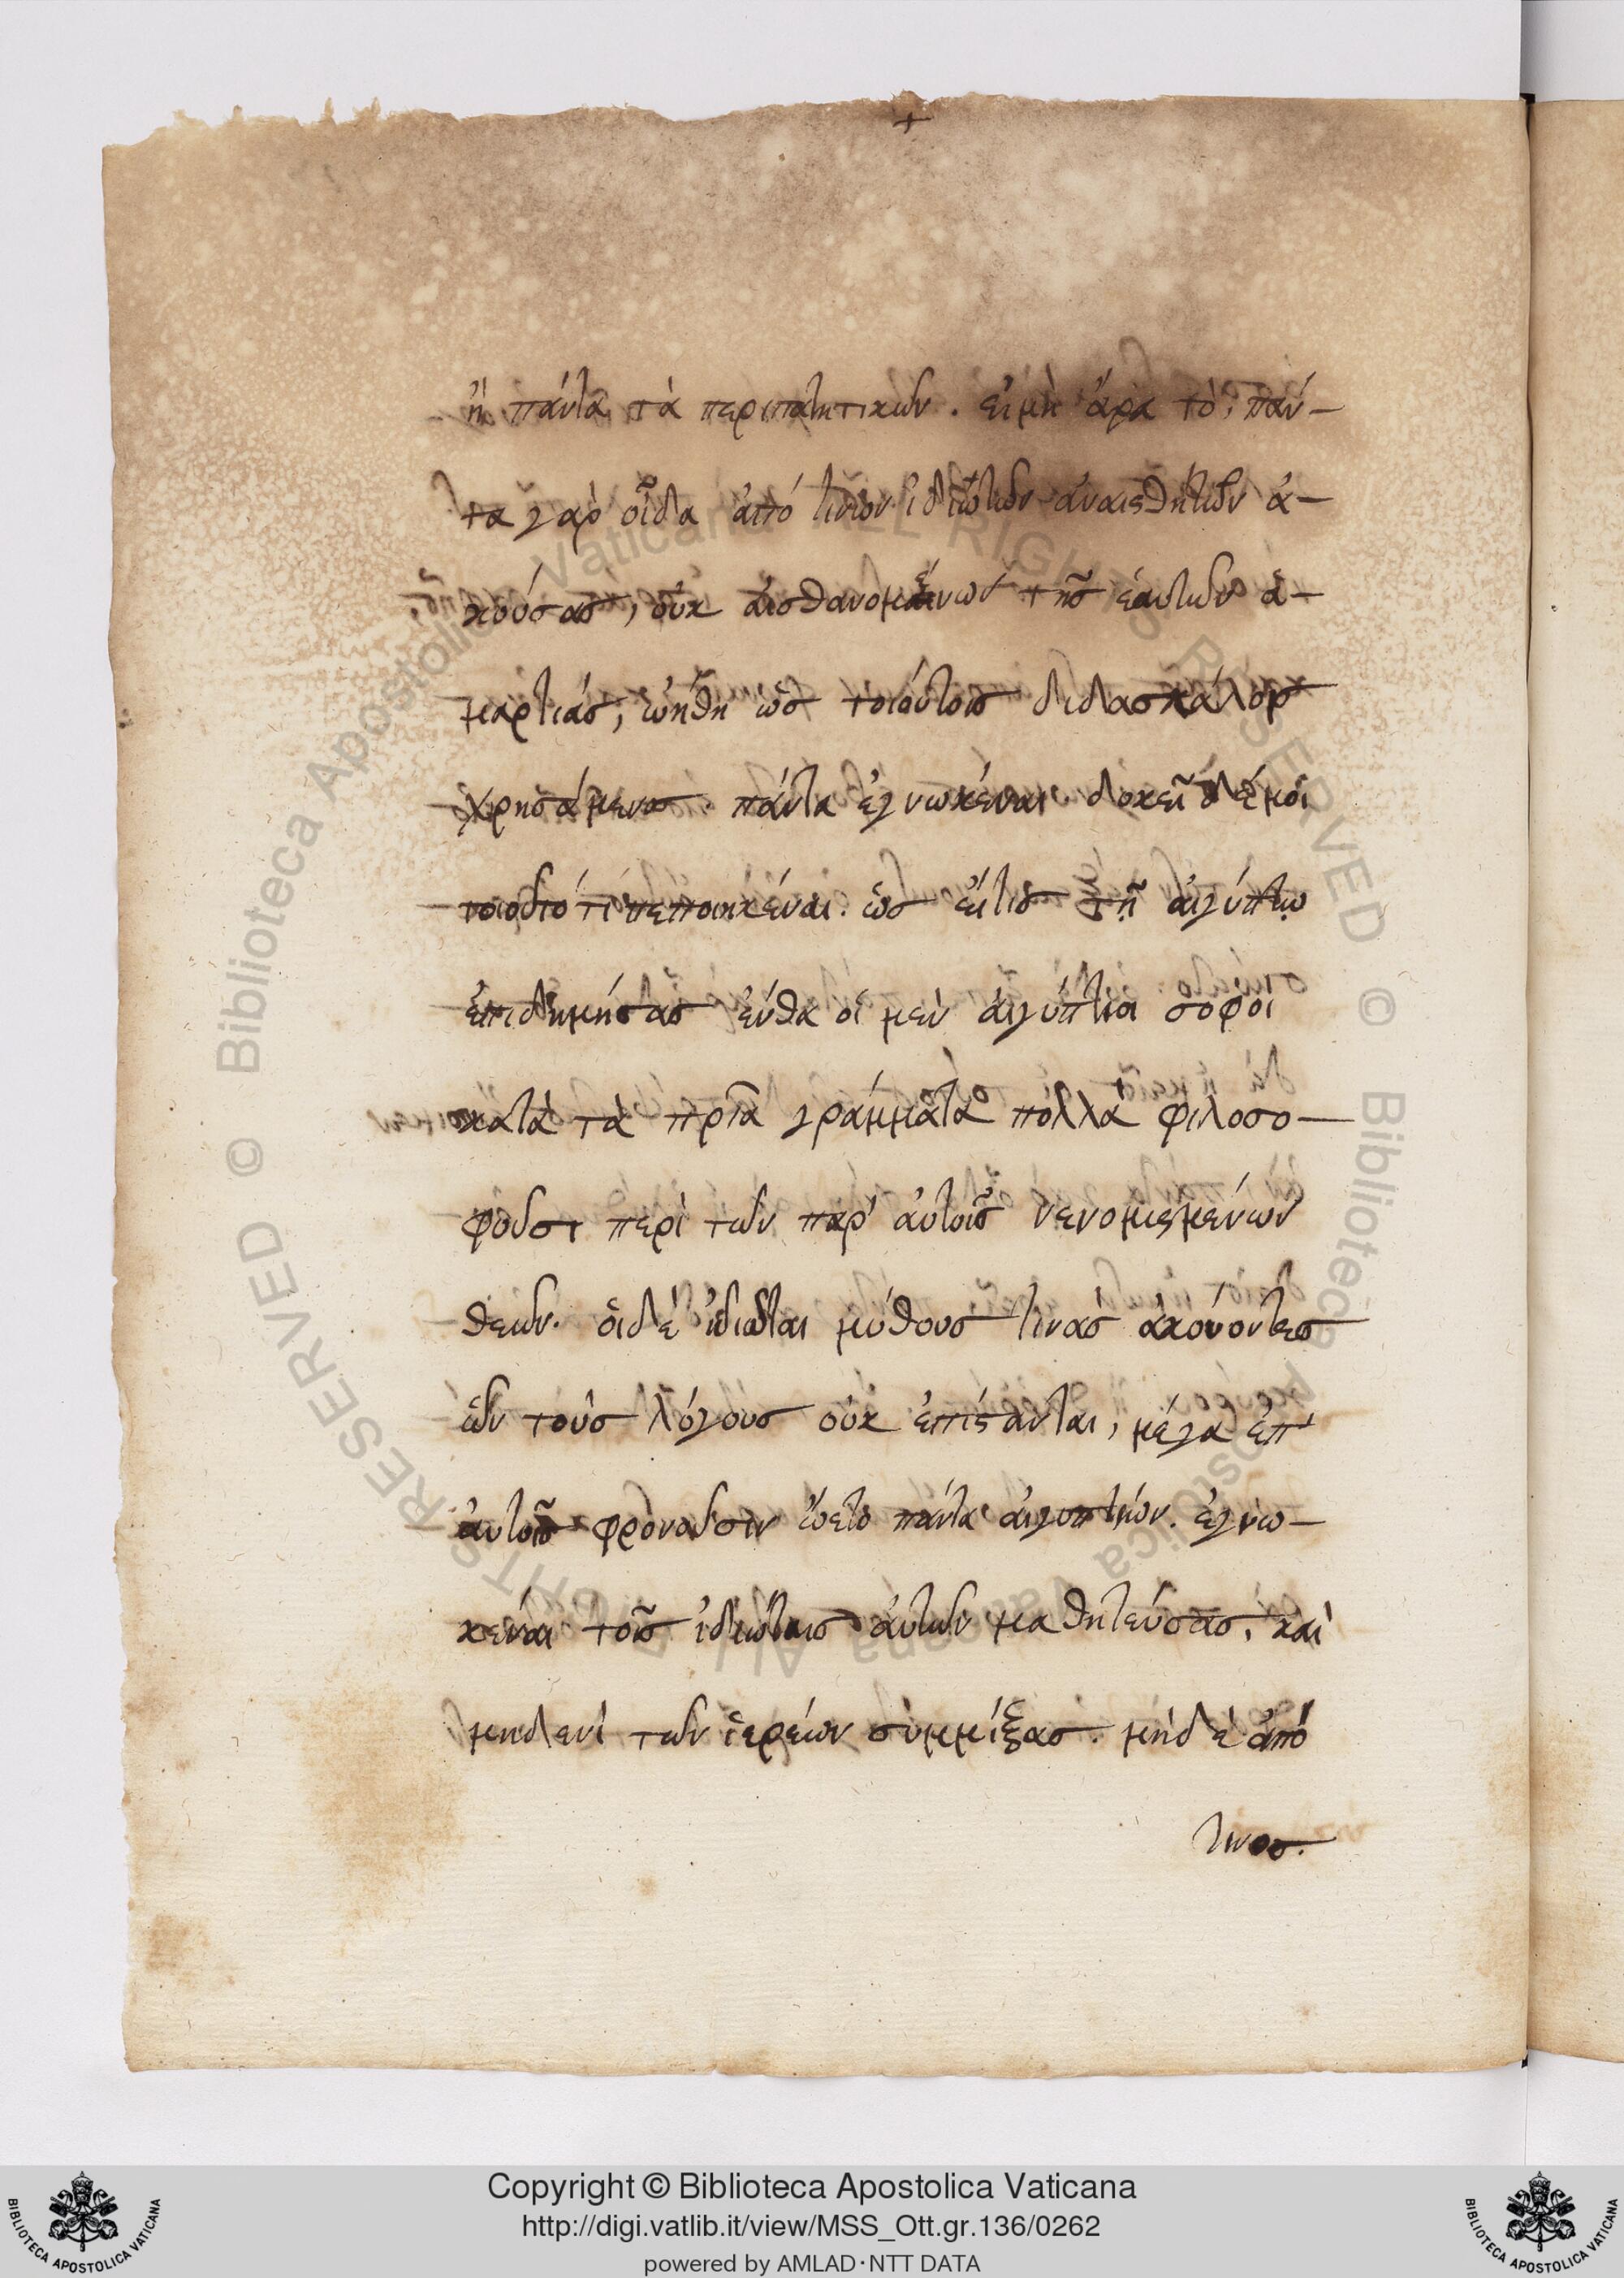 ἢ πάντα τὰ περιπατητικῶν. εἰμὴ ἄρα τὸ, πάν-
τα γὰρ οἶδα ἀπό τινων ἰδιωτῶν ἀναισθήτων ἀ-
κούσας, οὐκ αἰσθανομένων τῆς ἑαυτῶν ἀ-
μαρτιάς, ὠήθη ὡς τοιούτοις διδασκάλοις
χρησάμενος πάντα ἐγνωκέναι. δοκεῖ δέ μοι
τοιοῦτό τι πεποιηκέναι. ὡς εἴ τις τῇ αἰγύπτῳ
ἐπιδημήσας ἔνθα οἱ μὲν αἰγύπτιοι σοφοὶ
κατὰ τὰ πρῖα γράμματα πολλὰ φιλοσο-
φοῦσι περὶ τῶν παρ' αὐτοῖς νενομισμένων
θεῶν. οἱ δὲ ἰδιῶται μύθους τινὰς ἀκούοντες
ὧν τοὺς λόγους οὐκ ἐπίστανται, μέγα ἐπ'
αὐτοῖς φρονοῦσιν ὤετο πάντα αἰγυπτίων ἐγνω-
κέναι τοῖς ἰδιώταις αὐτῶν μαθητεύσας, καὶ
μηδενὶ τῶν ἱερέων συμμίξας. μηδὲ ἀπό
τινος.
© Biblioteca Apostolica Vaticana ALL RIGHTS RESERVED
© Biblioteca Apostolica Vaticana ALL RIGHTS RESERVED
BIBLIOTECA APOSTOLICA VATICANA
Copyright © Biblioteca Apostolica Vaticana
http://digi.vatlib.it/view/MSS_Ott.gr.136/0262
powered by AMLAD·NTT DATA
BIBLIOTECA APOSTOLICA VATICANA